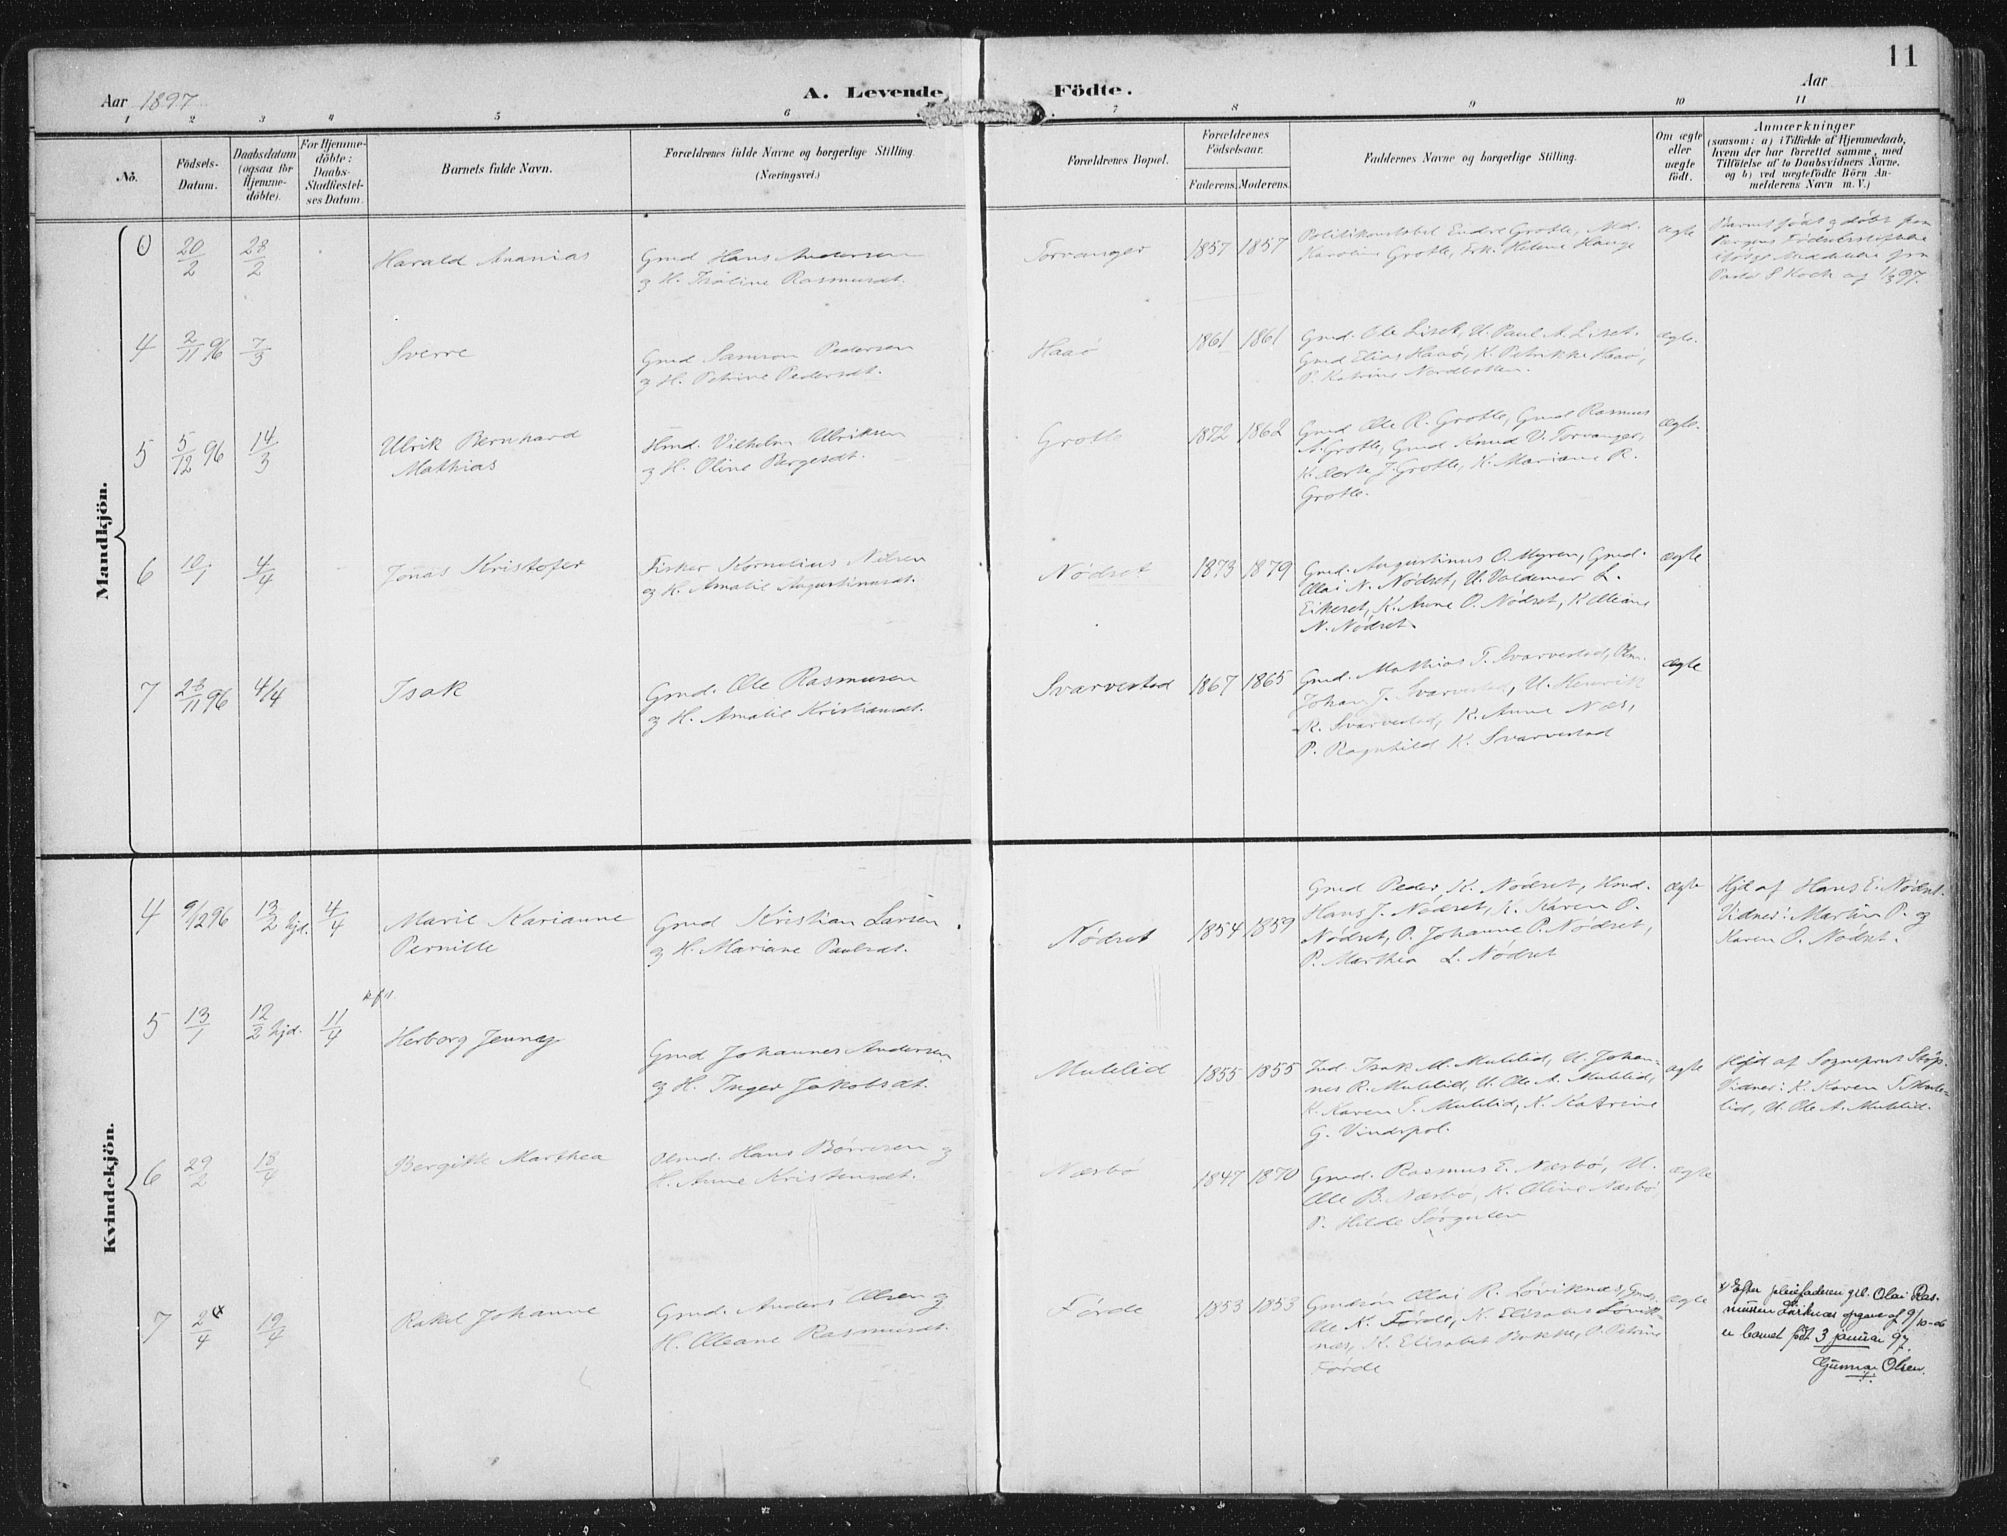 11
Aar 1897
A. Levende
Födte.
Aar
1 2 3 4 5 6 7 8 9 10 11
No.
Födsels-
Datum.
Daabsdatum
(ogsaa for
Hjemme-
döbte).
For Hjemme-
döbte:
Daabs-
Stadfæstel-
ses Datum.
Barnets fulde Navn.
Forældrenes fulde Navne og borgerlige Stilling.
(Næringsvei.)
Forældrenes Bopæl.
Forældrenes
Födselsaar.
Faderens. Moderens.
Faddernes Navne og borgerlige Stilling.
Om ægte
eller
uægte
födt.
Anmærkninger
(saasom: a) i Tilfælde af Hjemmedaab,
hvem der har forrettet samme, med
Tilföielse af to Daabsvidners Navne,
og b) ved uægtefödte Börn An-
melderens Navn m. V.)
Mandkjön.
0 20/2 28/2
Harald Ananias
Gmd Hans Andersen
og H. Isøline Rasmusdt.
Torvanger
1857 1857
Politikonstabel Endre Grotle, Md.
Karoline Grotle, Frk. Helene Hauge
ægte
Barnet født og døbt
Bergens Fødselsstiftelse
4 2/11 96 7/3
Sverre
Gmd Samson Pedersen
og H. Petrine Pedersdt.
Haaø
1861 1861
Gmd. Ole Liset, U. Paul A. Liset.
Gmd Elias Haaø, K. Petrikke Haaø,
P. Katrine Nordbotten.
ægte.
5 5/12 96 14/3
Ulrik Bernhard
Mathias
Hmd. Vilhelm Ulriksen
og H. Oline Børgesdt.
Grotle
1872 1862
Gmd Ole R. Grotle, Gmd Rasmus
A. Grotle, Gmd Knud V. Torvanger,
K. J. Grotle, K. Mariane R.
Grotle.
ægte.
6 10/1 4/4
Jonas Kristofer
Fisker Kornelius Nilsen
og H. Amalie Augustinusdt.
Nødset
1873 1879
Gmd. Augustinus O. Myren, Gmd.
Olai N. Nødset, U. Valdemar L.
Eikeset, K. Anne O. Nødset, K Oleane
N. Nødset.
ægte
7 28/11 96 4/4
Isak
Gmd. Ole Rasmusen
og H. Amalie Kristiansdt.
Svarvestad
1867 1865
Gmd. Mathias T. Svarvestad,
Johan J. Svarvestad, U. Henrik
R. Svarvestad, K. Anne Næs,
P. Ragnhild K. Svarvestad
ægte
Kvindekjön.
4 9/12 96 13/2 hjd. 4/4
Marie Karianne
Pernille
Gmd Kristian Larsen
og H. Mariane Paulsdt.
Nødset
1854 1859
Gmd Peder K. Nødset, Hmd.
Hans J. Nødset, K. Karen O.
Nødset, P. Johanne P. Nødset,
P. Marthea L. Nødset
ægte
Hjd af Hans E. Nødset.
Vidner: Martin P. og
Karen O. Nødset.
5 13/1 12/2 hjd. 11/4
Herborg Jenney
Gmd Johannes Andersen
og H. Inger Jakobsdt.
Mulelid
1855 1855
Ind. Isak M. Mulelid, U. Johan-
nes R. Mulelid, U. Ole A. Mulelid,
K. Karen T. Mulelid, K. Katrine
G. Vindspol.
ægte
Hjd af Sogneprest Støp.
Vidner: K. Karen T. Mule-
lid, U. Ole A. Mulelid.
6 29/2 18/4
Bergitte Marthea
Hans Børresen og
H. Anne Kristensdt.
Næsbø
1847 1870
Gmd. Rasmus E. Næsbø, U.
Ole B. Næsbø, K. Oline Næsbø
P. Hilde Sørgulen
ægte
7 2/4 x 19/4
Rakel Johanne
Gmd. Anders Olsen og
H. Oleane Rasmusdt.
Førde
1853 1853
Gmdsøn Olai R. Løviknæs, Gmds.
Ole K. Førde, K. Elisabet Løvik-
næs, K. Elisabet Bakke, P. Petrine
Førde
ægte
x Efter pleiefaderen gbr. Olai Ras-
mussen Løviknæs opgave af 9/10-06
er barnet født 3 januar 97.
Gunnar Olsen.